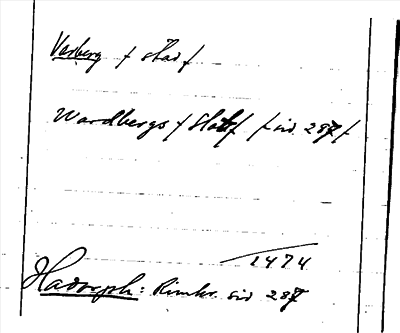 Varberg / stad /
Wardbergs / Slott / sid. 287 /
1474
Hadorph: Rimkr. sid 287